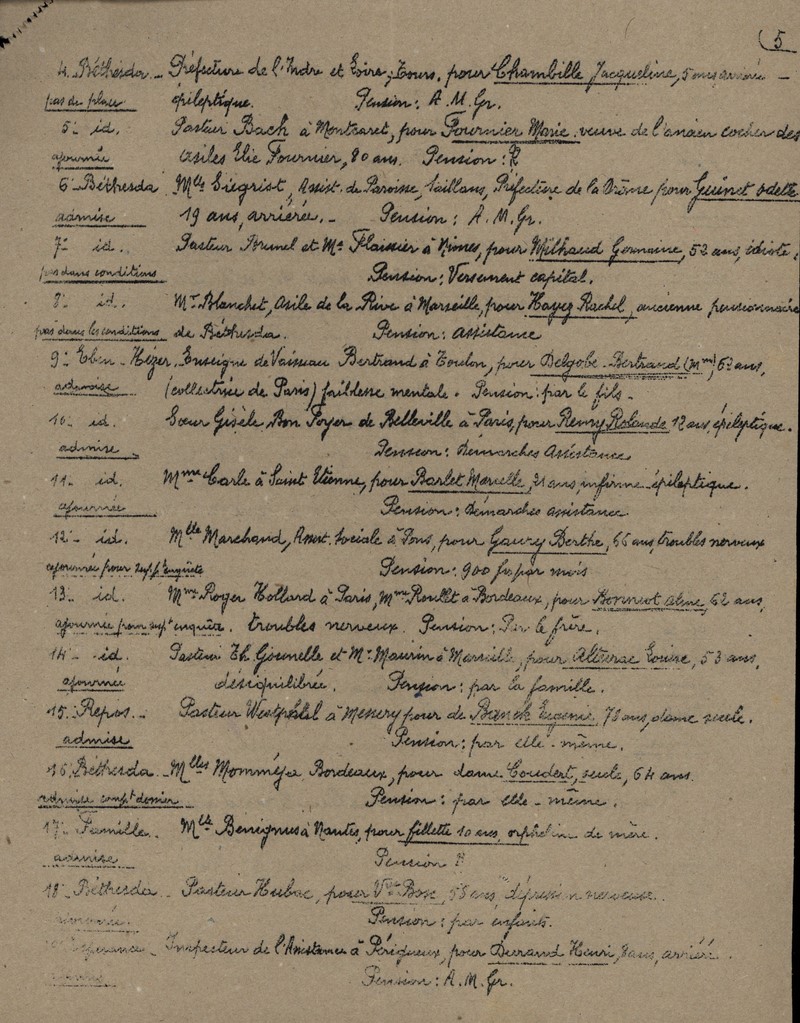 (5
4. Béthesda _ Préfecture de l'Indre et Loire, Tours, pour Chambille Jacqueline, 5 ans, arriérée _
pas de place épileptique. Pension: A. M. Gr.
5.- id. Pasteur Bach à Montcaret, pour Fournier Marie, veuve de l'ancien cocher des
ajournée Asiles Elie Fournier, 80 ans. Pension: ?
6.- Béthesda Mlle Siegrist, Assist. de Paroisse, Saillans, Préfecture de la Drôme pour Guinet Odette
admise 19 ans, arriérée. _ Pension: A. M. Gr.
7.- id. Pasteur Brunel et Me Flaissier à Nîmes, pour Milhaud Germaine, 52 ans, idiote.
pas dans conditions Pension: Versement capital.
8.- id. Mr Blanchet, Asile de la Rive à Marseille, pour Rachel, ancienne pensionnaire
pas dans les conditions de Béthesda. Pension: assistance
9.- Eben-Hézer. Enseigne de Vaisseau Bertrand à Toulon, pour Delgobe-Bertrand (Mme), ans,
admise (collectrice de Paris) faiblesse mentale. Pension: par le fils _
10.- id. Sœur Gisèle, Bon Foyer de Belleville à Paris, pour Remy Rolande 12 ans, épileptique.
admise Pension: Démarches Assistance
11.- id. Mme Carle à Saint Etienne, pour Barlet Marcelle, 21 ans, infirme épileptique.
ajournée Pension: démarches assistance.
12.- id. Mlle Marchand, Assist. sociale à Pons, pour Gaury Berthe, 66 ans, troubles nerveux
ajournée pour suppt enquête Pension: 900 frs par mois
13.- id. Mme Roger Hollard à Paris, Mme Roullet à Bordeaux, pour 62 ans,
ajournée pour supt enquête. troubles nerveux. Pension: Par le frère.
14.- id. Pasteur Th. Gounelle et Mr Maurin à Marseille, pour Louise, 53 ans,
ajournée déséquilibrée. Pension: par la famille.
15.- Repos. _ Pasteur Westphal à Messery pour de Eugenie, 78 ans, dame seule.
admise Pension: par elle-même.
16.- Béthesda. Mlles Momméja, Bordeaux, pour dame Coudert, seule, 64 ans.
admise compt dossier Pension: par elle-même.
17.- Famille. Mlle Benignus à Nantes, pour fillette 10 ans, orphelin de mère.
admise Pension ?
18.- Béthesda _ Pasteur Hubac, pour Vve Bosc, 58 ans, dépression nerveuse.
Pension: par enfants.
Espérance _ Inspecteur de l'Assistance à Périgueux, pour Durand Henri, 8 ans, arriéré.
Pension: A. M. Gr.